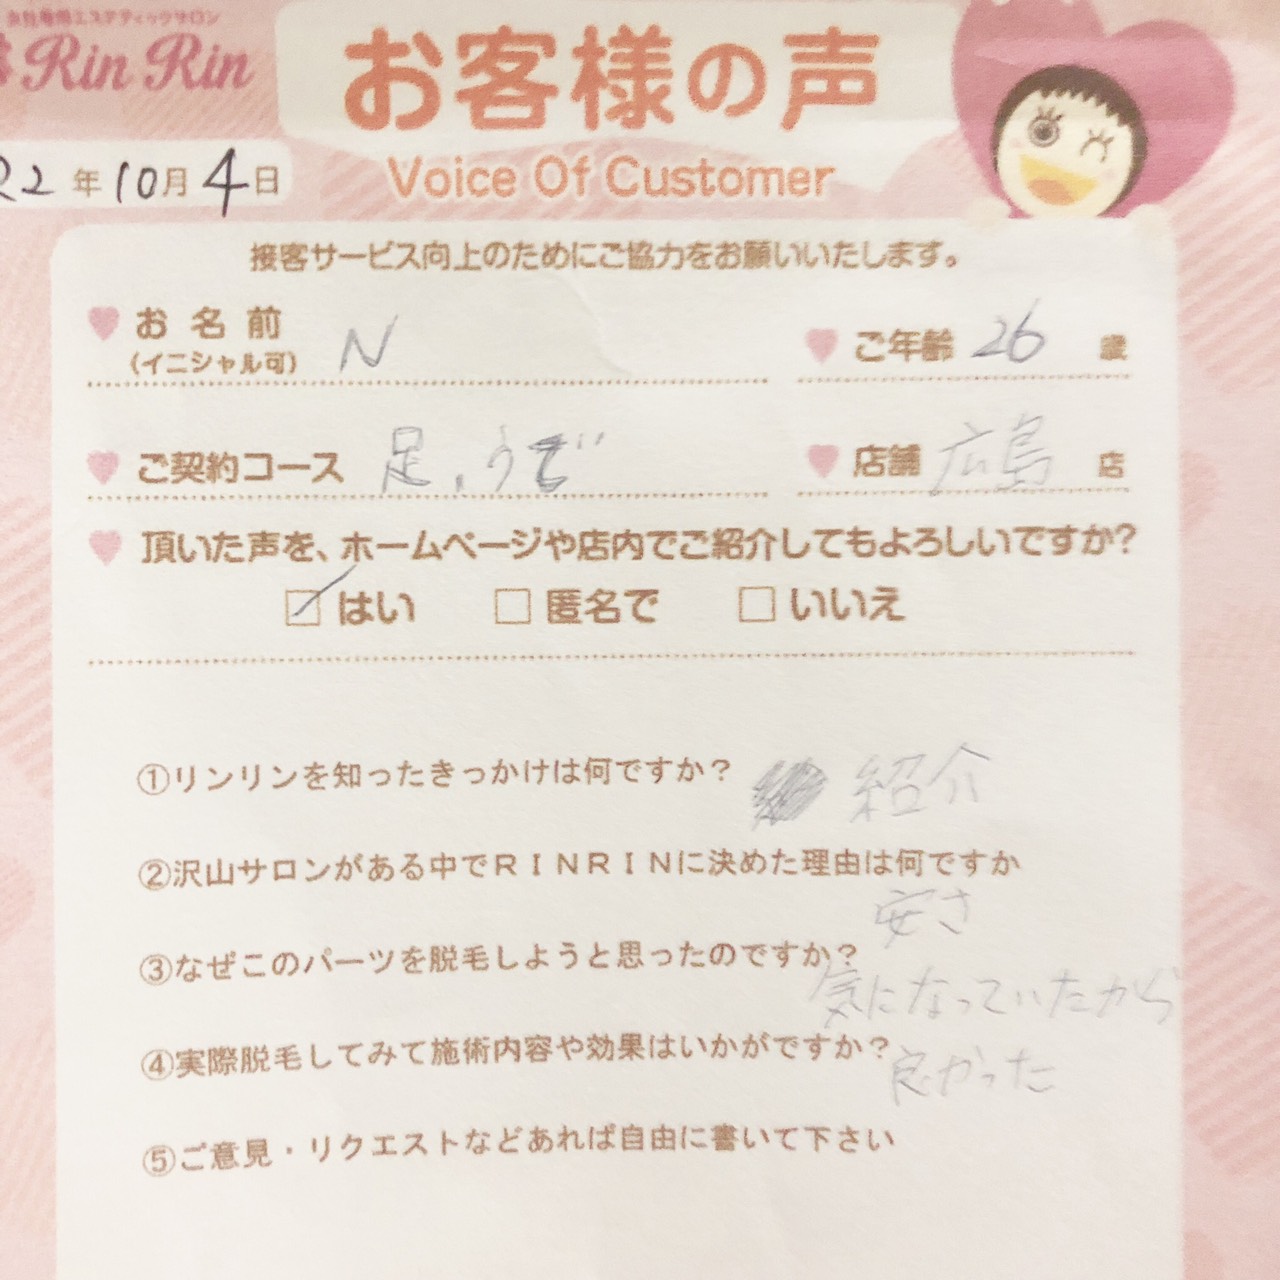 女性専用エステティックサロン
Rin Rin
お客様の声
Voice Of Customer
22年10月4日
接客サービス向上のためにご協力をお願いいたします。
お名前
(イニシャル可) N
ご年齢 26 歳
ご契約コース 足、うで
店舗 広島 店
頂いた声を、ホームページや店内でご紹介してもよろしいですか?
はい 匿名で いいえ
①リンリンを知ったきっかけは何ですか? 紹介
②沢山サロンがある中でRINRINに決めた理由は何ですか
安さ
③なぜこのパーツを脱毛しようと思ったのですか?
気になっていたから
④実際脱毛してみて施術内容や効果はいかがですか?
良かった
⑤ご意見・リクエストなどあれば自由に書いて下さい